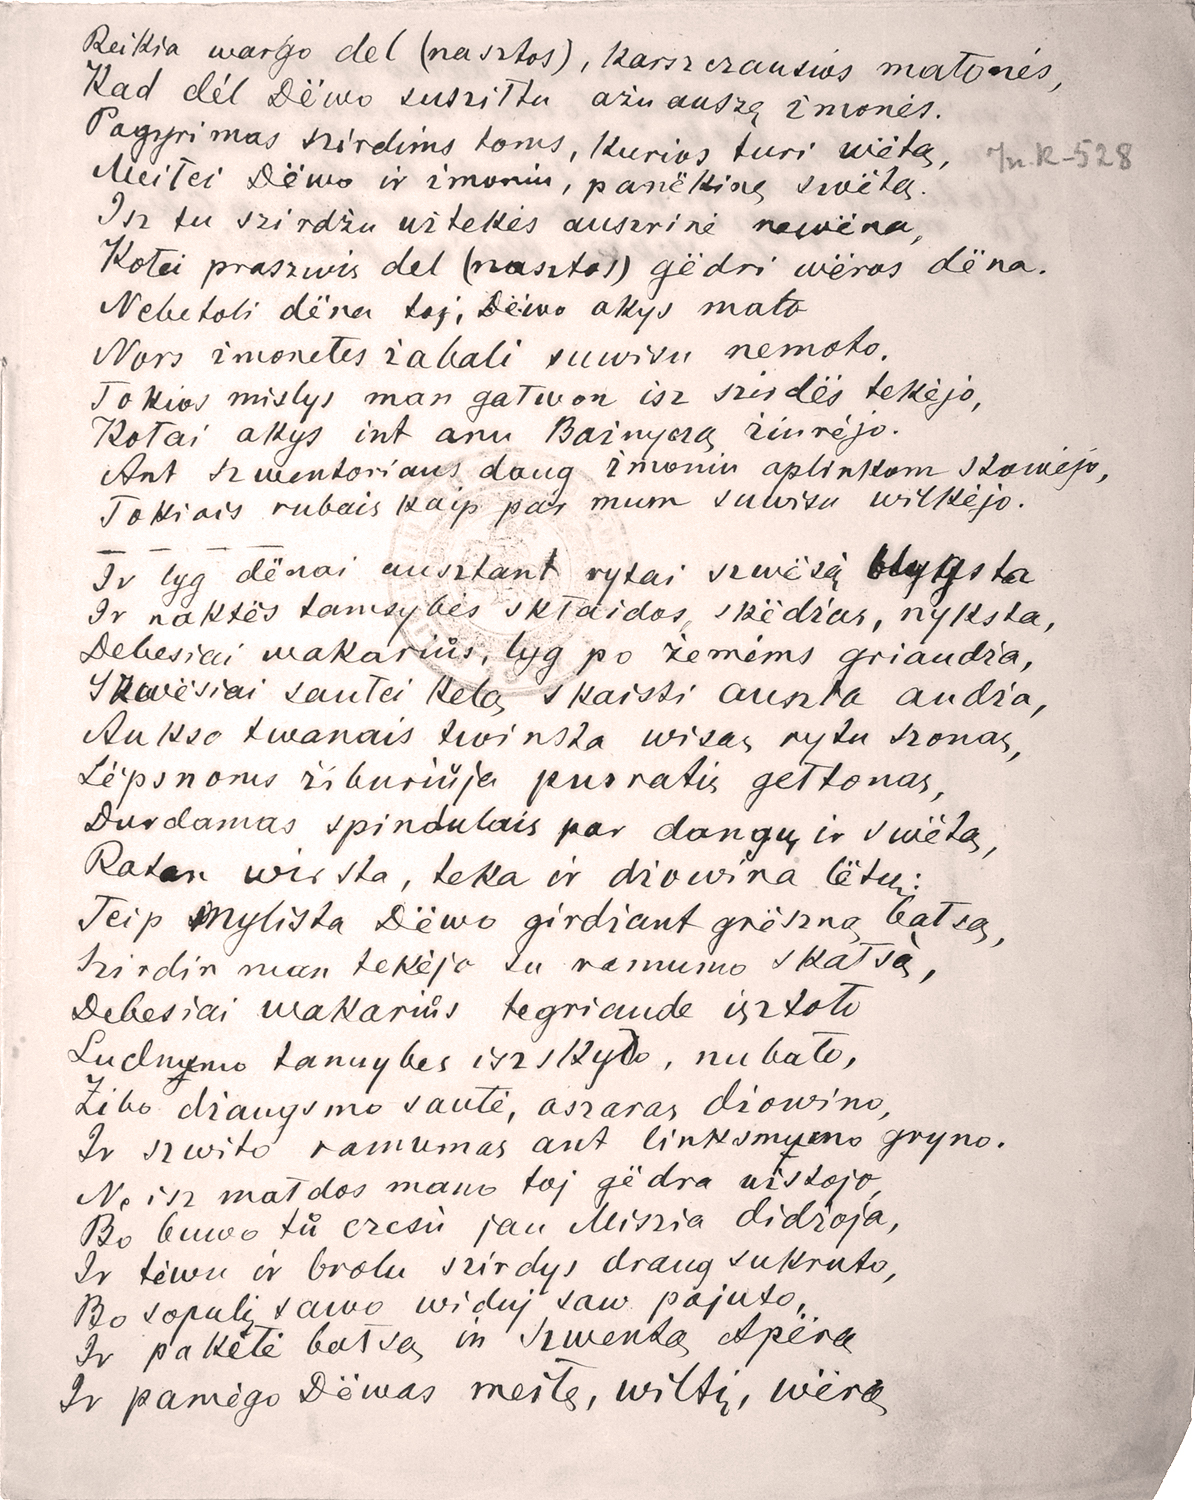 Reikia wargo del (nasztos), karszczausios małonės,
Kad dėl Dëwo susziłtu ažuauszą žmonės.
Pagyrimas szirdims toms, kurios turi wëtą,
Meiłei Dëwo ir žmoniu, panëkiną swëtą.
Isz tu szirdžu užtekės auszrinė newëna,
Kołei praszwis del (nasztos) gëdri wëros dëna.
Nebetoli dëna toj, Dëwo akys mato
Nors žmonełes žabali suwisu nemoto.
Tokios mislys man gatwon isz szirdës tekėjo,
Kołai akys int anu Bažnyczą žiurėjo.
Ant szwentoriaus daug žmoniu aplinkom stowėjo,
Tokiais rubais kaip pas mum suwisu wilkėjo.
Ir lyg dënai ausztant rytai szwësą blyksta
Ir naktës tamsybės skłaidos, skëdžas, nyksta,
Debesiai wakariůs, lyg po žemėms griaudža,
Szwësiai saulei kelą skaisti auszra audža,
Aukso twanais twinsta wisas rytu szonas,
Lëpsnoms žiburiůja pusratis gełtonas,
Durdamas spindulais par dangų ir swëtą,
Ratan wirsta, teka ir džowina lëtų:
Teip Mylista Dëwo girdžant grëszną bałsą,
Szirdin man tekėjo su ramumo skałsà,
Debesiai wakariůs tegriaude isztoło
Ludnymo tamsybes iszskyło, nubało,
Žibo džaugsmo saulė, aszaras džowino,
Ir szwito ramumas ant linksmymo gryno.
Ne isz małdos mano toj gëdra užstojo,
Bo buwo tů czesù jau Miszia didžoja,
Ir tėwu ir brolu szirdys draug sukruto,
Bo sopulį sawo widuj saw pajuto,
Ir pakėlė bałsą in Szwentą Apërą
Ir pamėgo Dëwas meiłę, wiltį, wërą
In. R-528